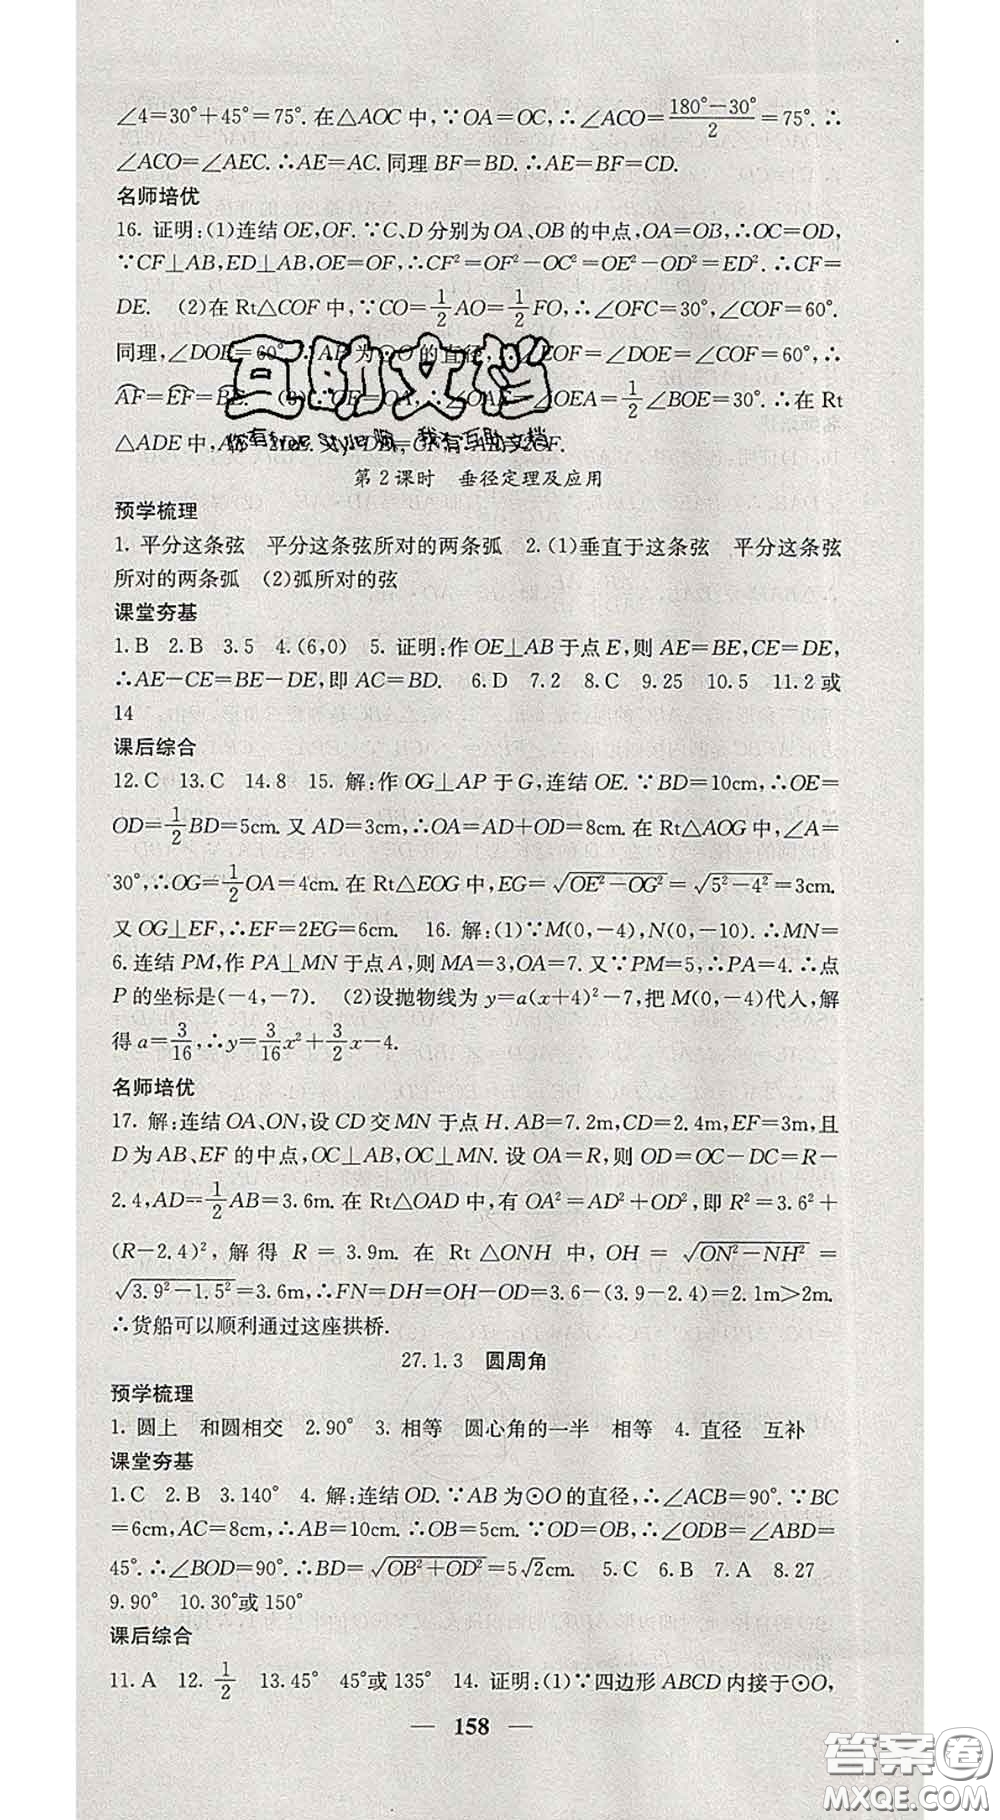 ∠4=30°+45°=75°. 在△AOC 中,∵OA=OC,∴∠ACO=\frac{180°-30°}{2}=75°. ∴
∠ACO=∠AEC. ∴AE=AC. 同理 BF=BD. ∴AE=BF=CD.
名师培优
16. 证明:(1)连结 OE,OF. ∵C、D 分别为 OA、OB 的中点,OA=OB,∴OC=OD,
∵CF⊥AB,ED⊥AB,OE=OF,∴CF²=OF²-OC²=OE²-OD²=ED². ∴CF=
DE. (2)在 Rt△COF 中,∵CO=\frac{1}{2}AO=\frac{1}{2}FO,∴∠OFC=30°,∠COF=60°.
同理,∠DOE=60° 为⊙O 的直径, COF=∠DOE=∠COF=60°,∴
AF=EF=BE. OE=OA, ∠OEA=\frac{1}{2}∠BOE=30°. ∴在 Rt
△ADE 中, CF.
互助文档
你有free style嘛,我有互助文档
第 2 课时 垂径定理及应用
预学梳理
1. 平分这条弦 平分这条弦所对的两条弧 2. (1)垂直于这条弦 平分这条弦
所对的两条弧 (2)弧所对的弦
课堂夯基
1. B 2. B 3. 5 4. (6,0) 5. 证明:作 OE⊥AB 于点 E,则 AE=BE,CE=DE,
∴AE-CE=BE-DE,即 AC=BD. 6. D 7. 2 8. C 9. 25 10. 5 11. 2 或
14
课后综合
12. C 13. C 14. 8 15. 解:作 OG⊥AP 于 G,连结 OE. ∵BD=10cm,∴OE=
OD=\frac{1}{2}BD=5cm. 又 AD=3cm,∴OA=AD+OD=8cm. 在 Rt△AOG 中,∠A=
30°,∴OG=\frac{1}{2}OA=4cm. 在 Rt△EOG 中,EG=\sqrt{OE²-OG²}=\sqrt{5²-4²}=3cm.
又 OG⊥EF,∴EF=2EG=6cm. 16. 解:(1)∵M(0,-4),N(0,-10). ∴MN=
6. 连结 PM,作 PA⊥MN 于点 A,则 MA=3,OA=7. 又∵PM=5,∴PA=4. ∴点
P 的坐标是(-4,-7). (2)设抛物线为 y=a(x+4)²-7,把 M(0,-4)代入,解
得 a=\frac{3}{16},∴y=\frac{3}{16}x²+\frac{3}{2}x-4.
名师培优
17. 解:连结 OA、ON,设 CD 交 MN 于点 H. AB=7.2m,CD=2.4m,EF=3m,且
D 为 AB、EF 的中点,OC⊥AB,OC⊥MN. 设 OA=R,则 OD=OC-DC=R-
2.4,AD=\frac{1}{2}AB=3.6m. 在 Rt△OAD 中,有 OA²=AD²+OD²,即 R²=3.6²+
(R-2.4)²,解得 R=3.9m. 在 Rt△ONH 中,OH=\sqrt{ON²-NH²}=
\sqrt{3.9²-1.5²}=3.6m,∴FN=DH=OH-OD=3.6-(3.9-2.4)=2.1m>2m.
∴货船可以顺利通过这座拱桥.
27.1.3 圆周角
预学梳理
1. 圆上 和圆相交 2. 90° 3. 相等 圆心角的一半 相等 4. 直径 互补
课堂夯基
1. C 2. B 3. 140° 4. 解:连结 OD. ∵AB 为⊙O 的直径,∴∠ACB=90°. ∵BC
=6cm,AC=8cm,∴AB=10cm. ∴OB=5cm. ∵OD=OB,∴∠ODB=∠ABD=
45°. ∴∠BOD=90°. ∴BD=\sqrt{OB²+OD²}=5\sqrt{2}cm. 5. C 6. B 7. A 8. 27
9. 90° 10. 30°或 150°
课后综合
11. A 12. \frac{1}{2} 13. 45° 45°或 135° 14. 证明:(1)∵四边形 ABCD 内接于⊙O,
— 158 —
答案圈
MXQE.COM